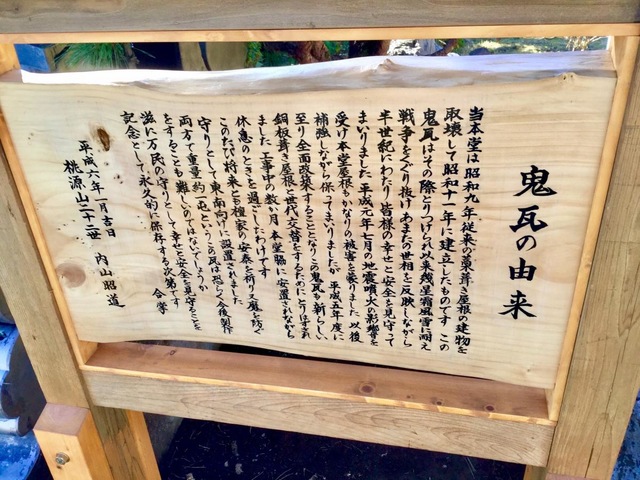 鬼瓦の由来
当本堂は昭和九年従来の藁葺き屋根の建物を
取壊して昭和十一年に建立したものです この
鬼瓦はその際とりつけられ以来幾星霜風雪に耐え
戦争をくぐり抜けあまたの世相を反映しながら
半世紀にわたり皆様の幸せと安全を見守って
まいりました 平成元年七月の地震噴火の影響を
受け本堂屋根もかなりの被害を蒙りました 以後
補強しながら保ってまいりましたが 平成五年度に
至り全面改築することとなりこの鬼瓦も新らしい
銅板葺き屋根と世代交替をするためにとりはずされ
ました 工事中の数か月 本堂脇に安置されながら
休息のときを過ごしたわけです
このたび将来とも檀家の安泰を祈り又鬼を防ぐ
守りとして東南向けに設置されました
重量約一屯というこの瓦は恐らく今後製作
両方で
をすることも難しいのではないでしょうか
滋に万民の守りとして幸せと安全を見守ることを
記念として永久的に保存する次第です
合掌
平成六年一月吉日
桃源山二十二世 内山昭道